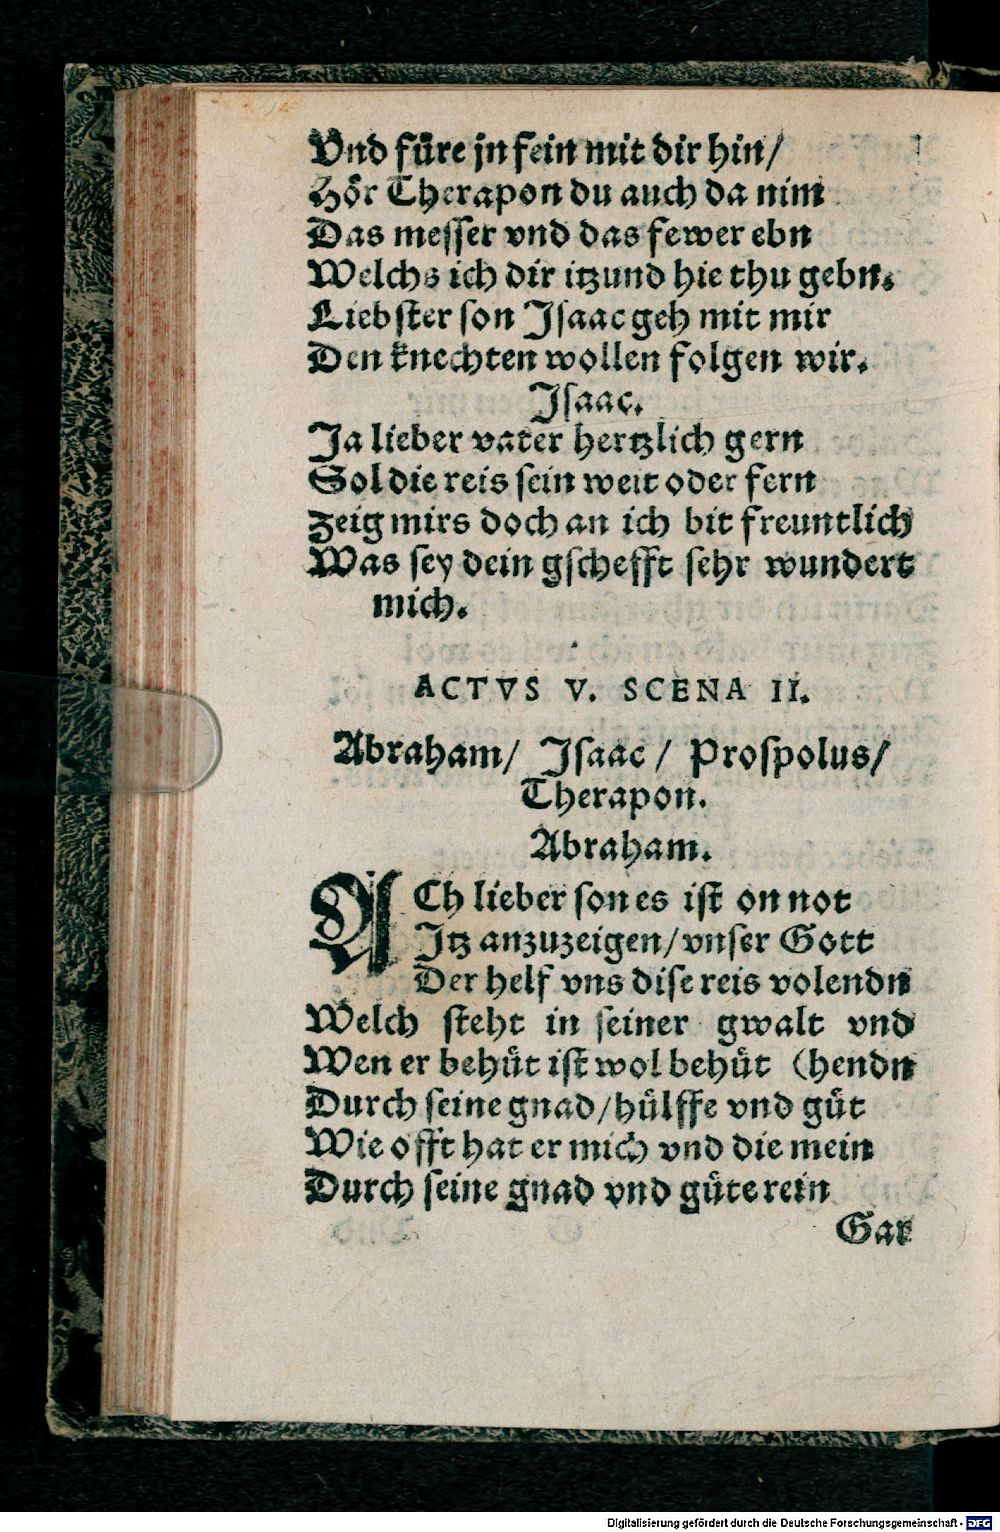 Vnd füre jn fein mit dir hin/
Hör Therapon du auch da nim
Das messer vnd das fewer ebn
Welchs ich dir itzund hie thu gebn.
Liebster son Isaac geh mit mir
Den knechten wollen folgen wir.
Isaac.
Ja lieber vater hertzlich gern
Sol die reis sein weit oder fern
Zeig mirs doch an ich bit freuntlich
Was sey dein gschefft sehr wundert
mich.
ACTVS V. SCENA II.
Abraham/ Isaac/ Prospolus/
Therapon.
Abraham.
ACh lieber son es ist on not
Itz anzuzeigen/vnser Gott
Der helf vns dise reis volendn
Welch steht in seiner gwalt vnd
Wen er behüt ist wol behüt (hendn
Durch seine gnad/hülffe vnd güt
Wie offt hat er mich vnd die mein
Durch seine gnad vnd güte rein
Gar
Digitalisierung gefördert durch die Deutsche Forschungsgemeinschaft - DFG